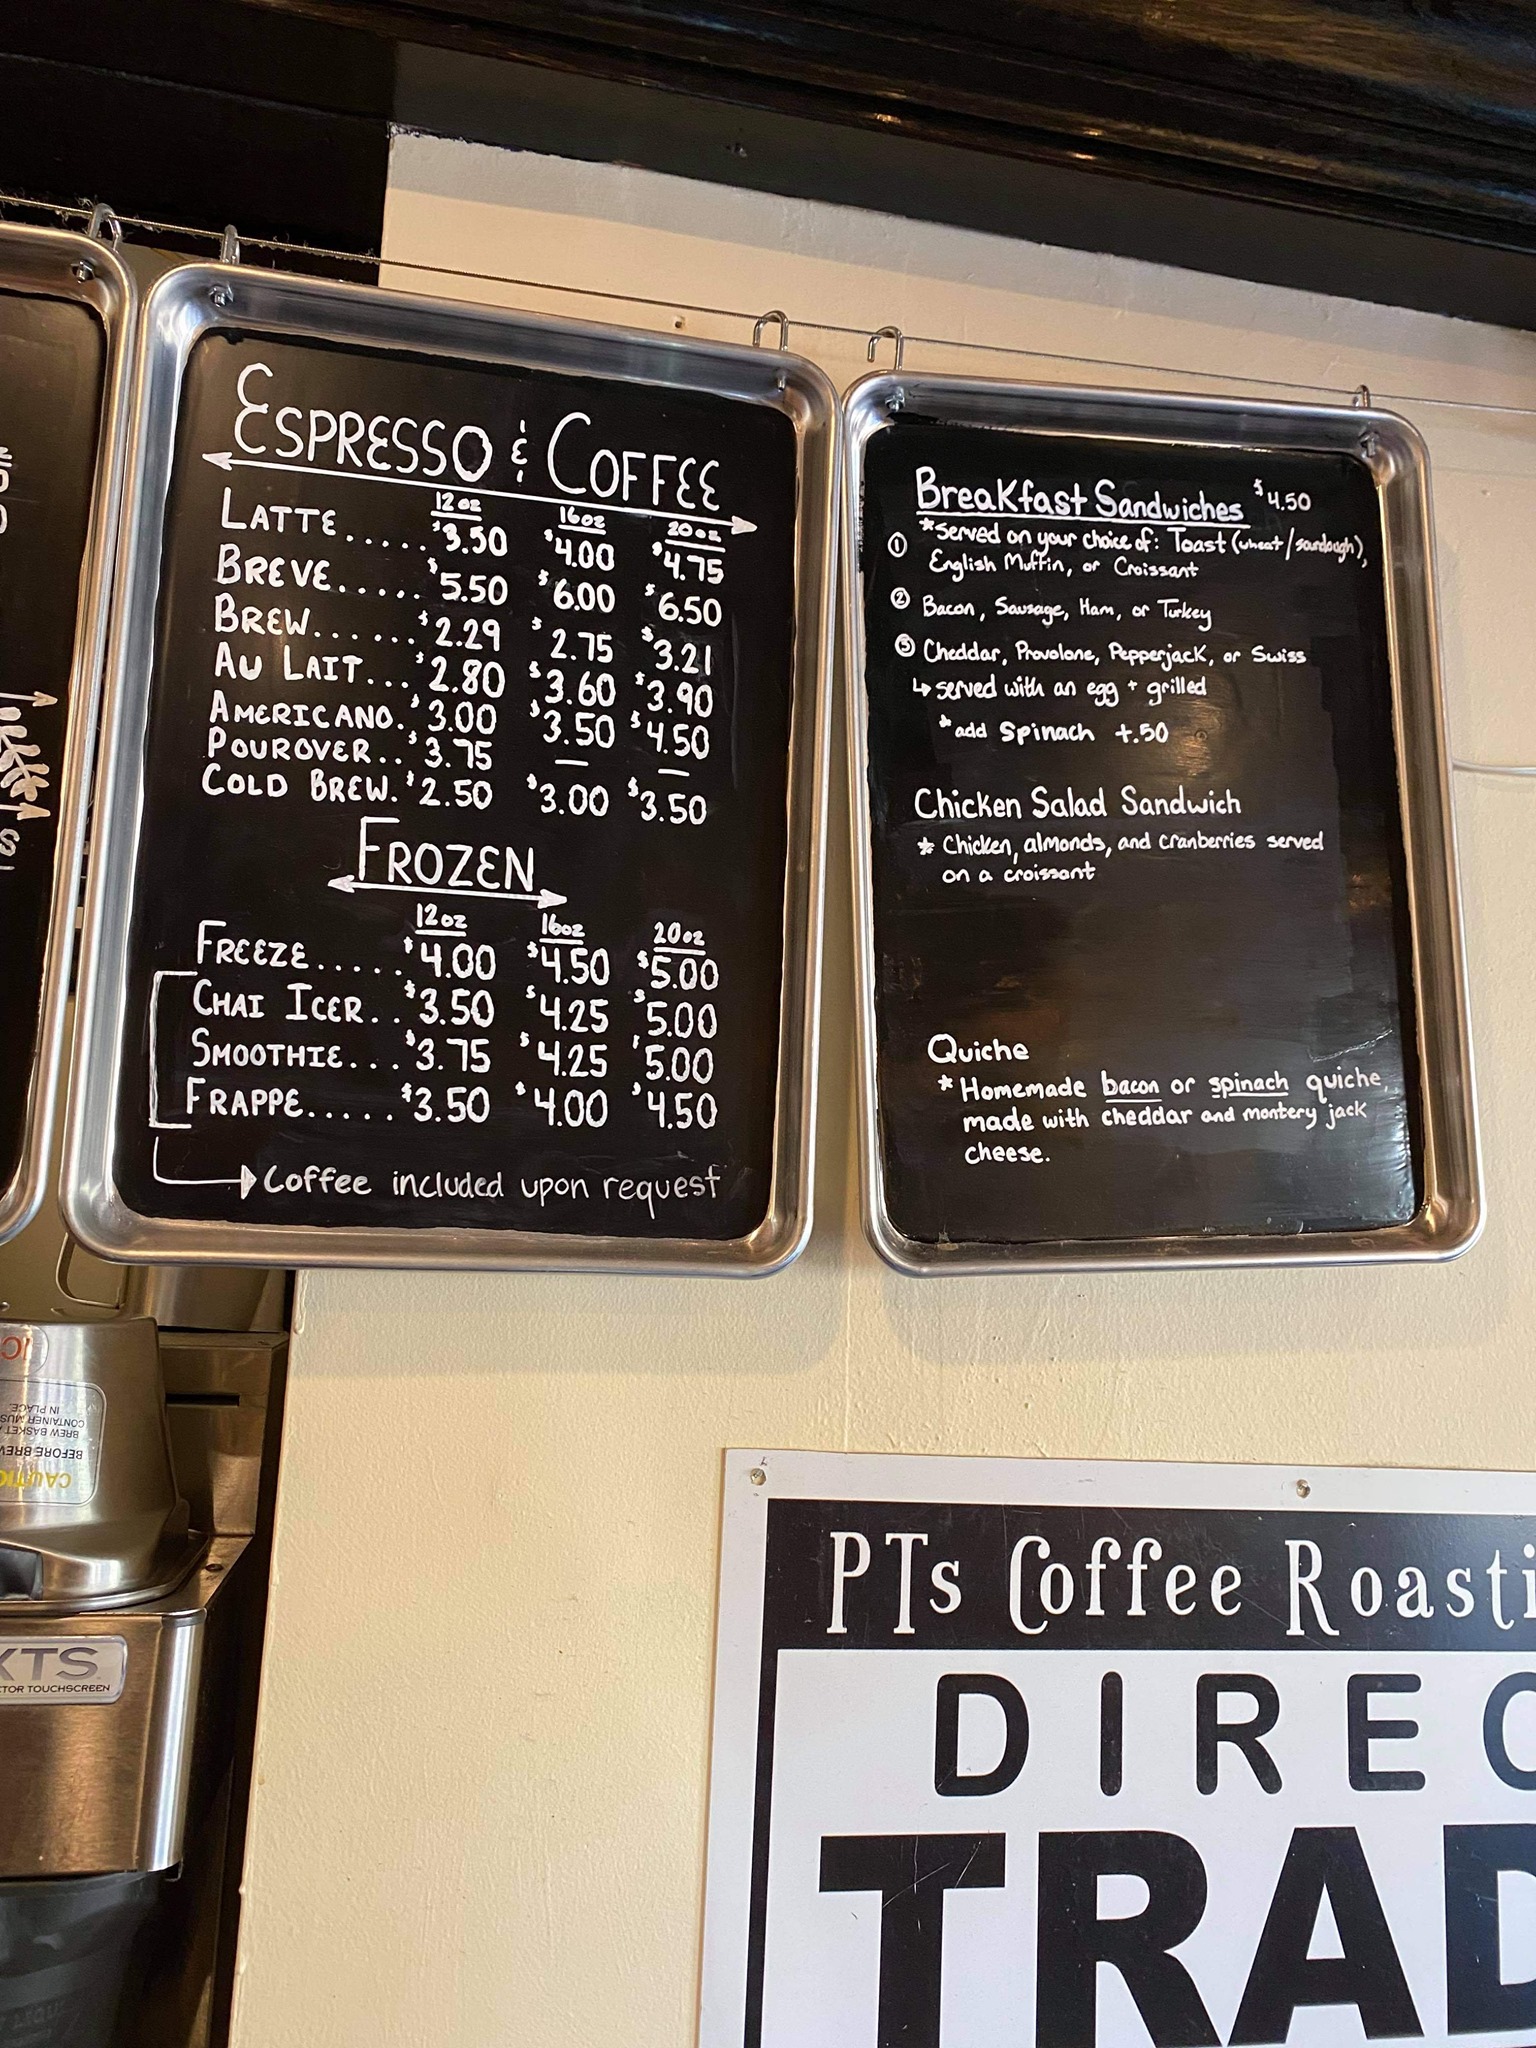 ESPRESSO & COFFEE
12oz 16oz 20oz
LATTE..... $3.50 $4.00 $4.75
BREVE..... $5.50 $6.00 $6.50
BREW...... $2.29 $2.75 $3.21
AU LAIT... $2.80 $3.60 $3.90
AMERICANO. $3.00 $3.50 $4.50
POUROVER.. $3.75 — —
COLD BREW. $2.50 $3.00 $3.50
FROZEN
12oz 16oz 20oz
FREEZE..... $4.00 $4.50 $5.00
CHAI ICER.. $3.50 $4.25 $5.00
SMOOTHIE... $3.75 $4.25 $5.00
FRAPPE..... $3.50 $4.00 $4.50
Coffee included upon request
Breakfast Sandwiches $4.50
① *Served on your choice of: Toast (wheat/sourdough),
English Muffin, or Croissant
② Bacon, Sausage, Ham, or Turkey
③ Cheddar, Provolone, Pepperjack, or Swiss
↳ served with an egg + grilled
*add Spinach +.50
Chicken Salad Sandwich
* Chicken, almonds, and cranberries served
on a croissant
Quiche
* Homemade bacon or spinach quiche,
made with cheddar and montery jack
cheese.
CAUTI
BEFORE BREW
BREW BASKET
CONTAINER MUS
IN PLACE.
XTS
TOR TOUCHSCREEN
PTs Coffee Roasti
DIREC
TRAD